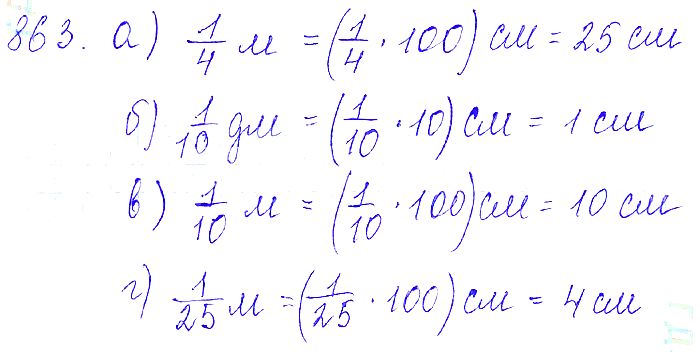 863. а) 1/4 м = (1/4 · 100) см = 25 см
б) 1/10 дм = (1/10 · 10) см = 1 см
в) 1/10 м = (1/10 · 100) см = 10 см
г) 1/25 м = (1/25 · 100) см = 4 см